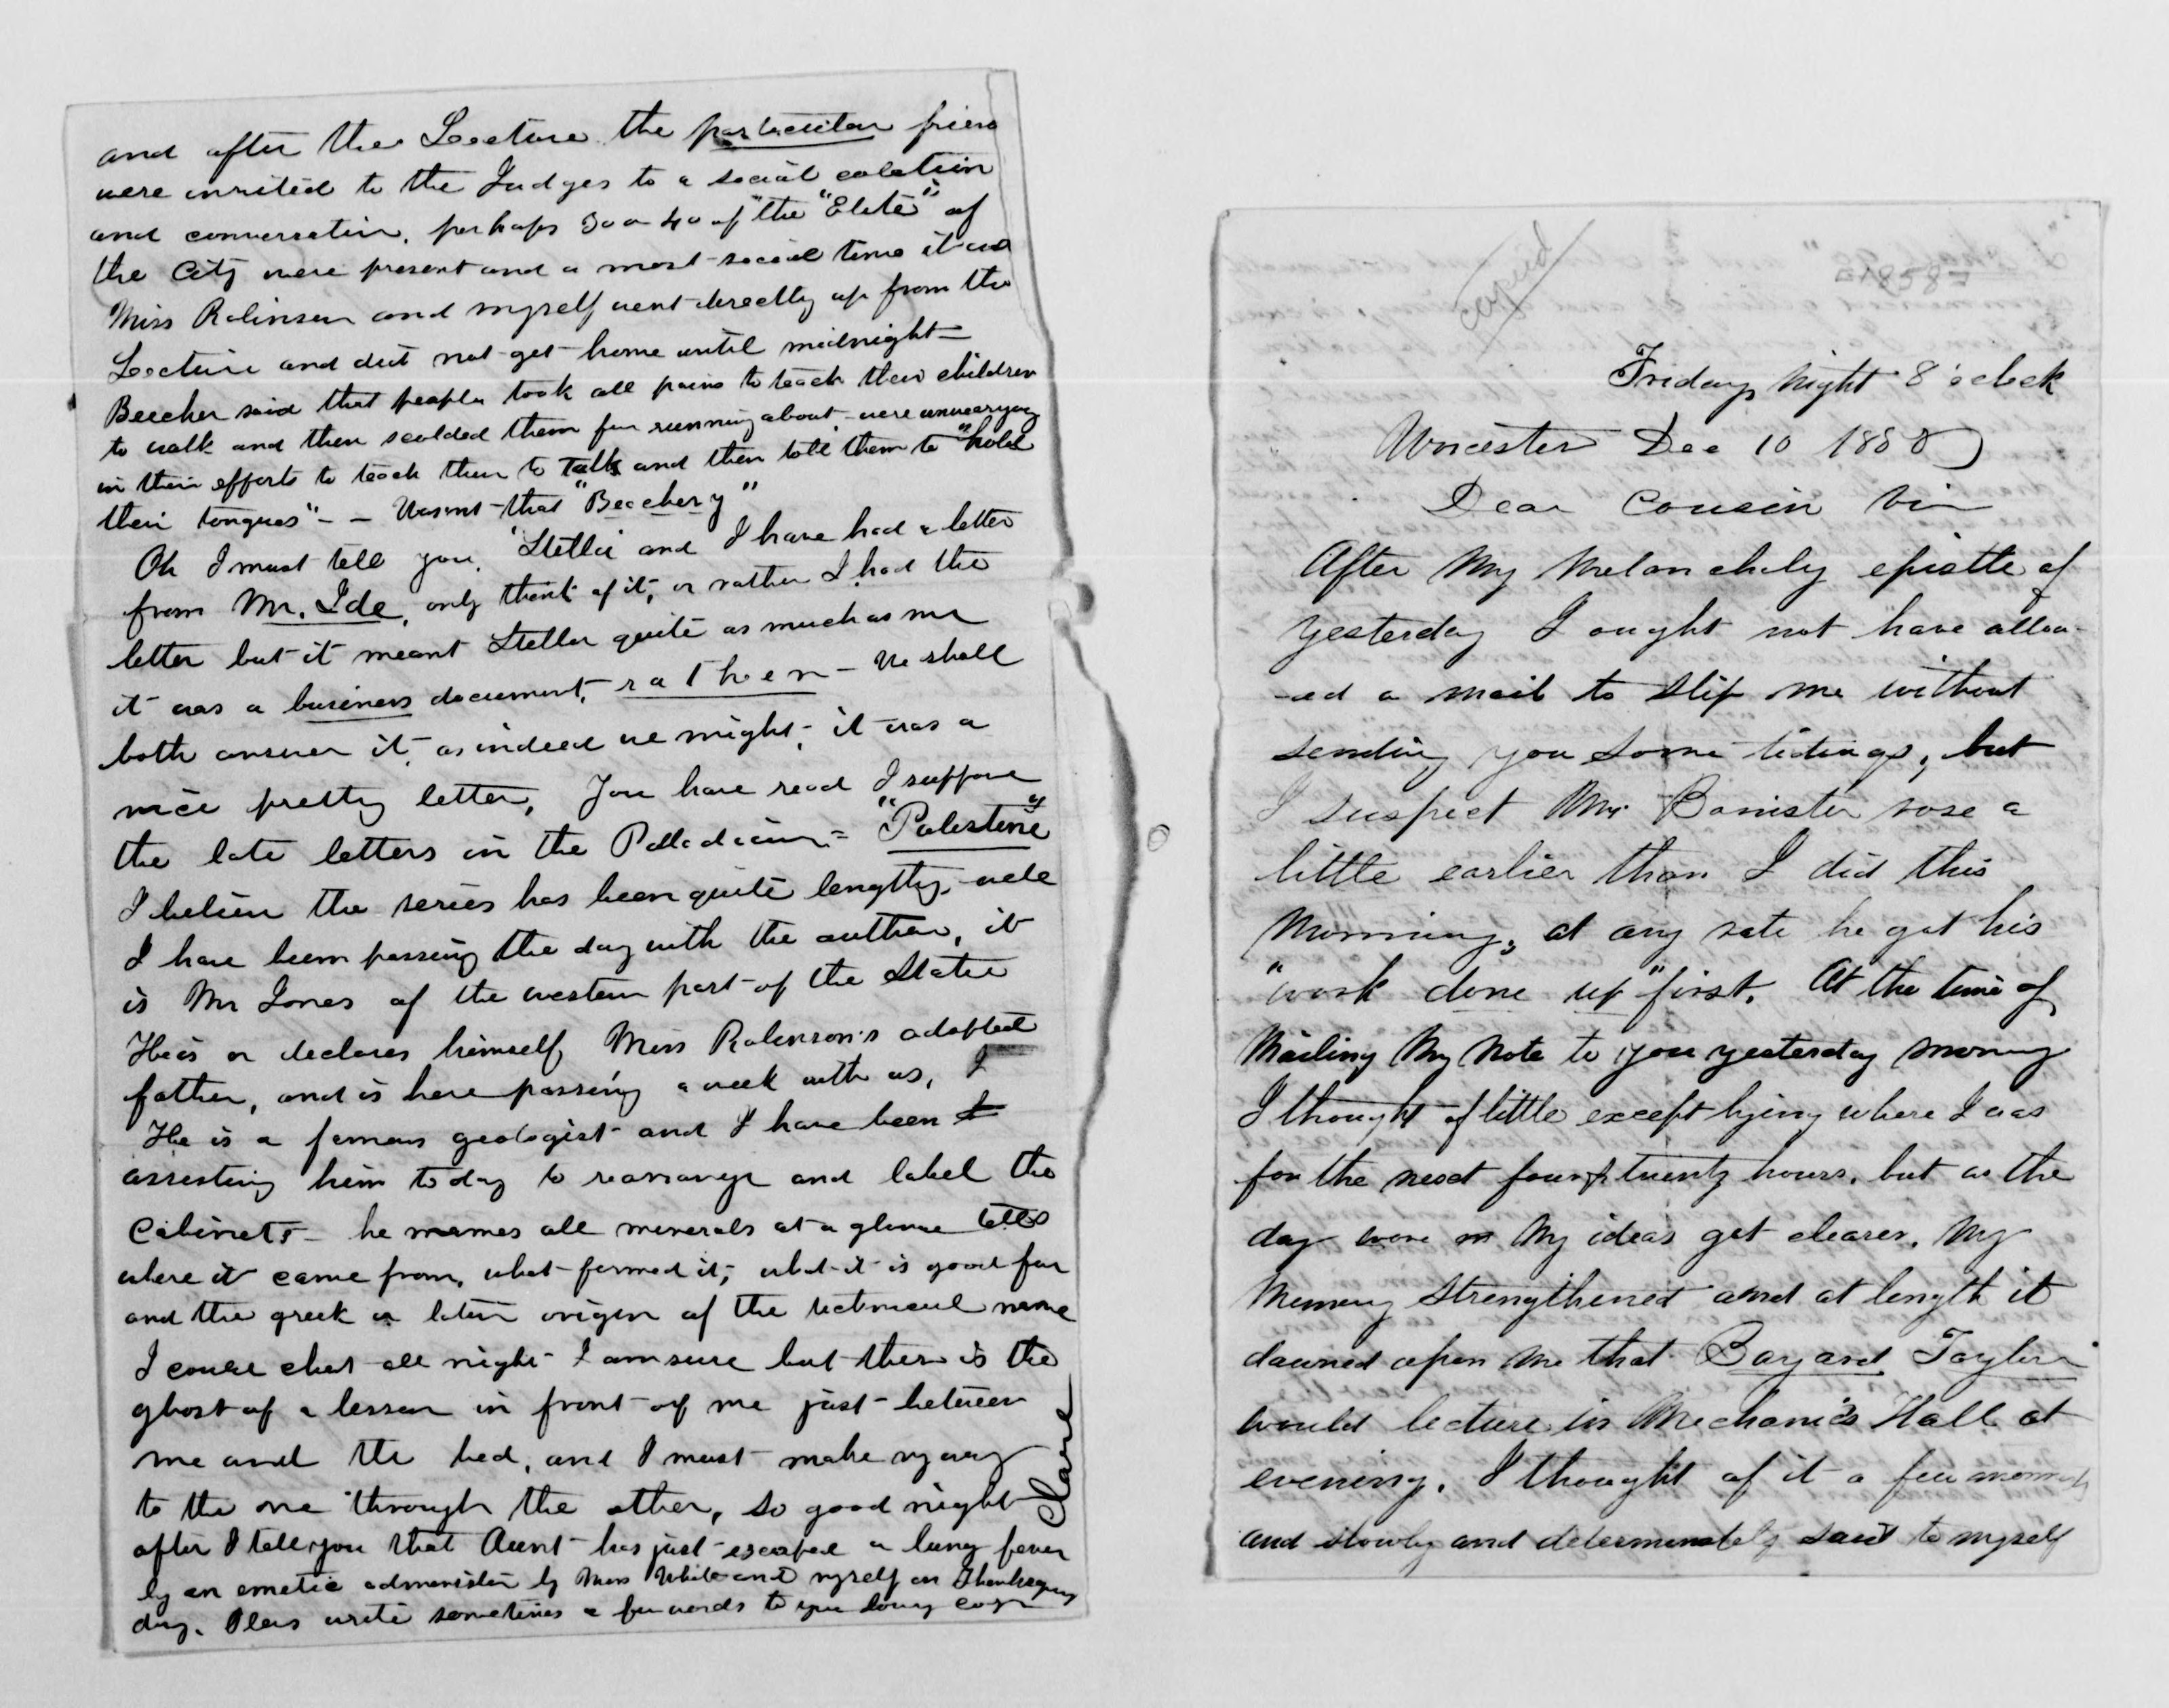 and after the Lecture the particular frien
were invited to the Judges to a social colation
and conversation, perhaps 30 or 40 of "the "Elite" of
the City were present and a most social time it was
Miss Robinson and myself went directly up from the
Lecture and did not get home until midnight —
Beecher said that people took all pains to teach their children
to walk and then scolded them for running about - were unwearying
in their efforts to teach them to talk and then told them to "hold
their tongues" - - Wasnt that "Beechery"
Oh I must tell you, Stella and I have had a letter
from Mr. Ide, only think of it, or rather I had the
letter but it meant Stella quite as much as me
it was a business document, rather - We shall
both answer it, as indeed we might, it was a
nice pretty letter, You have read I suppose
the late letters in the Palladium = "Palestine"
I believe the series has been quite lengthy, well
I have been passing the day with the author, it
is Mr Jones of the western part of the State
He is or declares himself Miss Robinson's adopted
father, and is here passing a week with us, I
He is a famous geologist and I have been t
assisting him to day to rearrange and label the
Cabinets - he names all minerals at a glance tells
where it came from, what formed it, what it is good for
and the greek or latin origin of the technical name
I could chat all night I am sure but there is the
ghost of a lesson in front of me just between
me and the bed, and I must make my way
to the one through the other, so good night
after I tell you that Aunt has just escaped a lung fever
by an emetic administer by Miss White and myself on Thanksgiving
day. Pleas write sometimes a few words to your loving
Clara
copied
[1858]
Friday night 8 o'clock
Worcester Dec 10 1858
Dear Cousin Vin
After My Melancholy epistle of
yesterday I ought not have allow-
-ed a mail to slip me without
sending you some tidings, but
I suspect Mr Banister rose a
little earlier than I did this
Morning, at any rate he got his
"work done up" first. At the time of
Mailing My Note to you yesterday morning
I thought of little except lying where I was
for the next four & twenty hours. but as the
day wore on My ideas get clearer, My
Memory Strengthened and at length it
dawned upon me that Bayard Taylor
would lecture in Mechanics Hall at
evening. I thought of it a few moments
and slowly and determinately said to myself